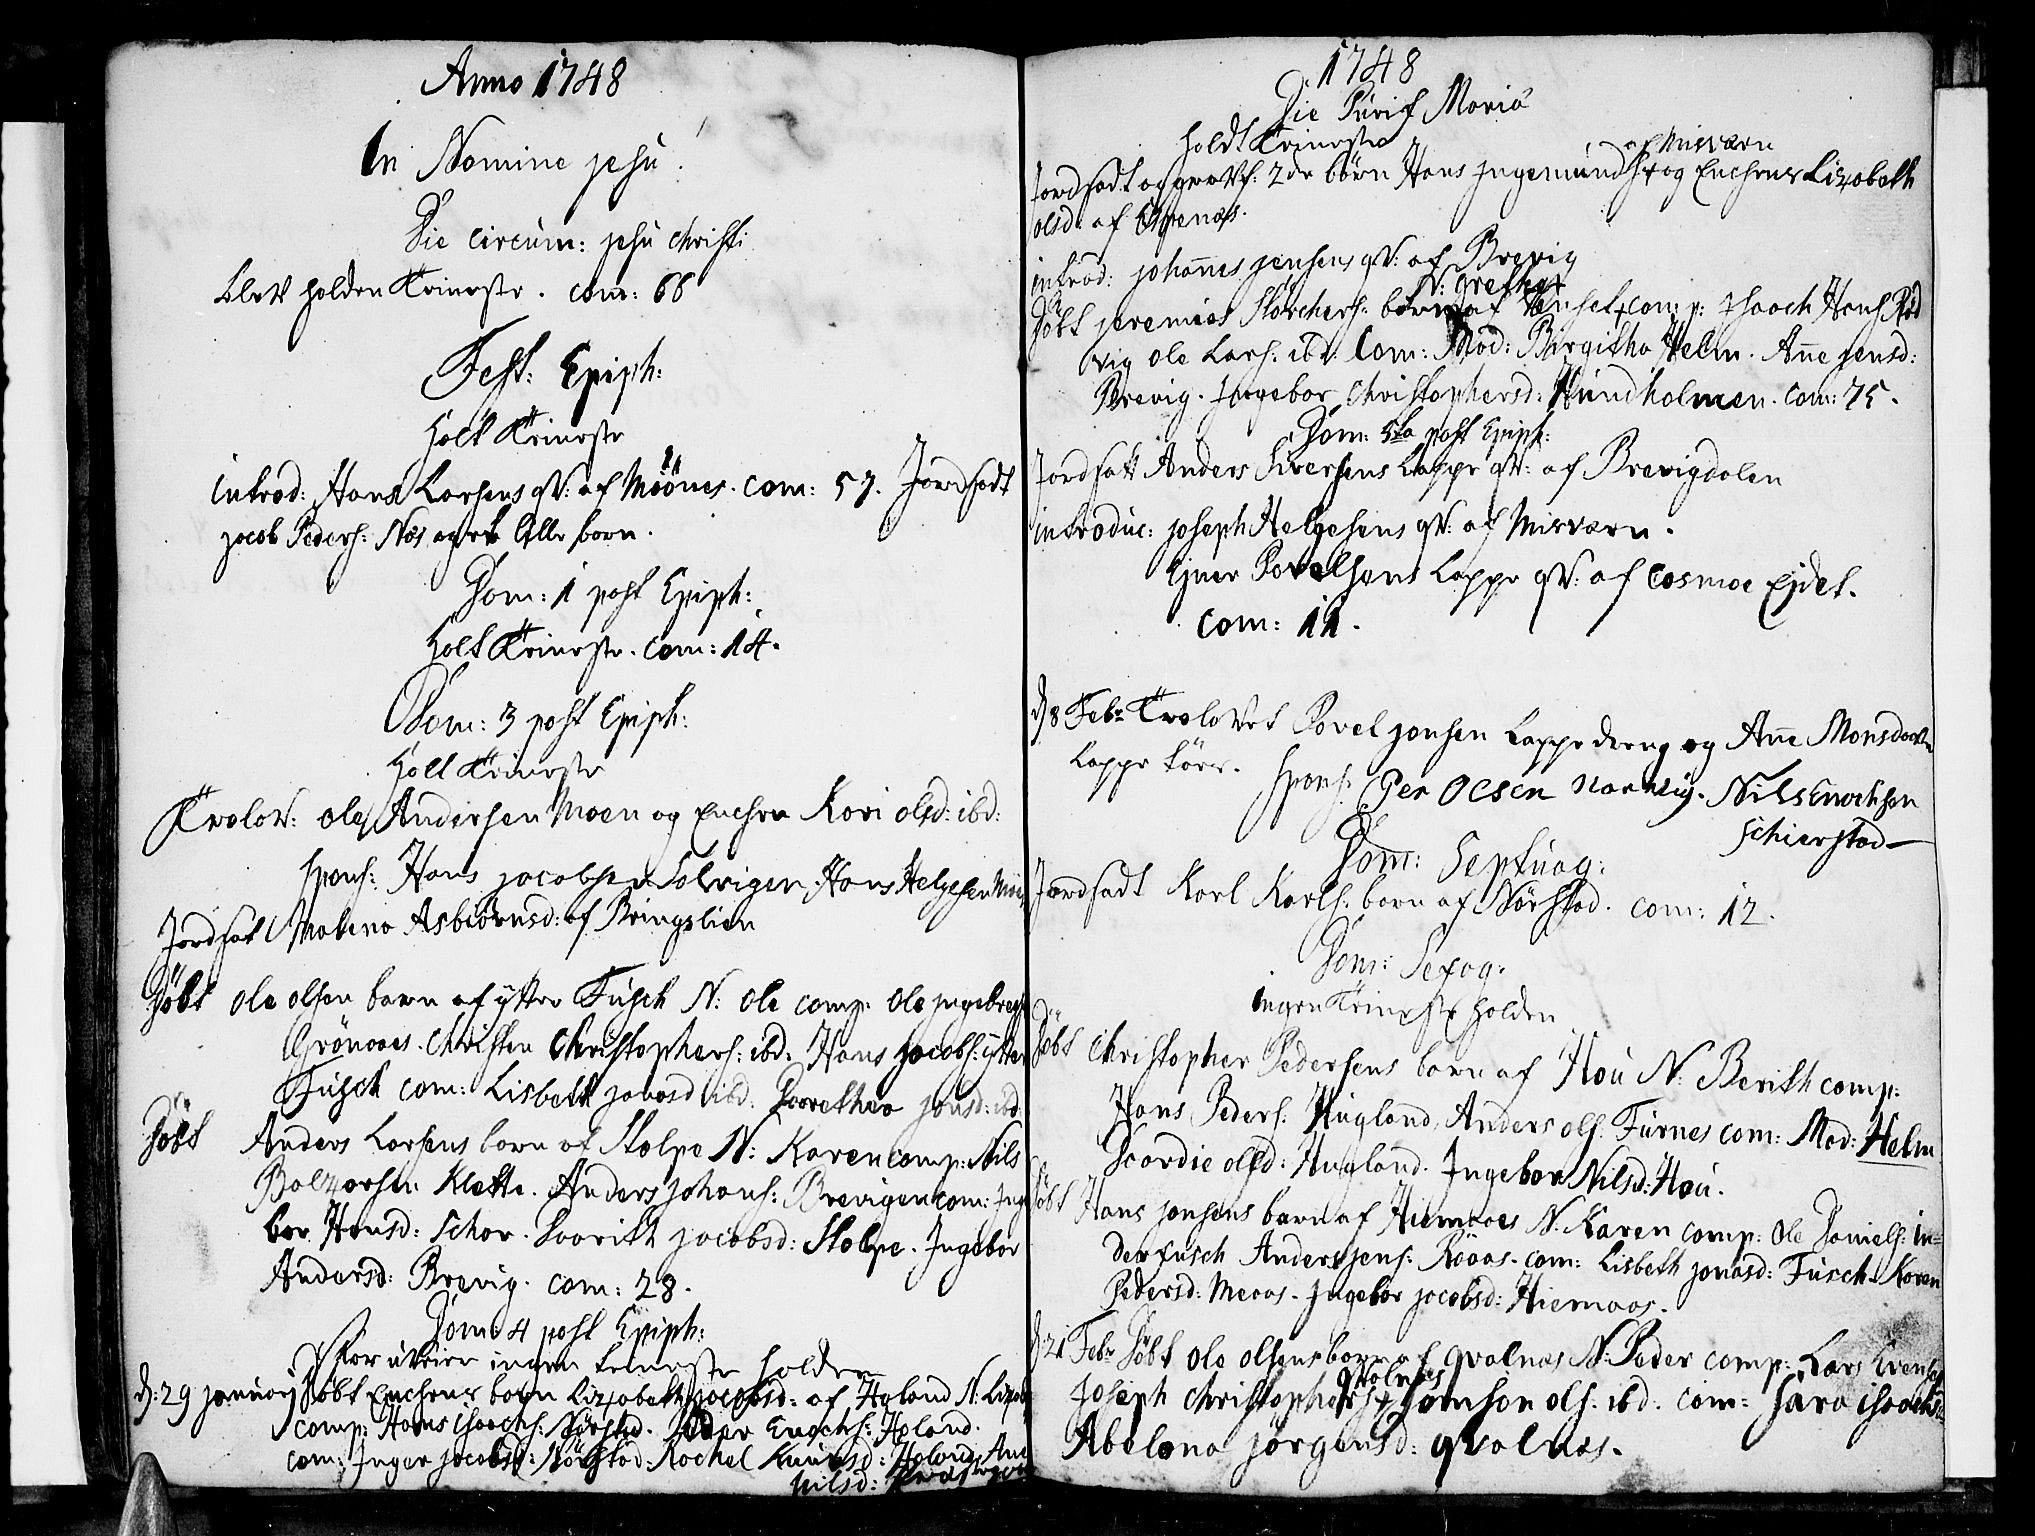 Anno 1748
In Nomine Jesu!
Die Circum: Jesu Christi
blev holden Tieneste. com: 66
Fest: Epiph:
Holt Tieneste
introd: Hans Larsens qv: af Möönes. com: 57. Jordfæst
Jacob Peders: Næs lille barn.
Dom: 1 post Epiph:
Holt Tieneste. com: 14.
Dom: 3 post Epiph:
Holt Tieneste
Trolov: Ole Andersen Moen og Enchen Kari olsd: ibd:
spons: Hans Jacobsen Solvigen, Hans Helgesen Moen
Jordfæst Malena Asbiörnsd: af Bringslien
Döbt Ole Olsen barn af ytter Fusch N: Ole comp: Ole Ingebregts:
Grönaaes. Christen Christophers: ibd. Hans Jacobs: ytter
Fusch com: Lisbeth Jonasd: ibd: Dorethea Jonsd: ibd:
Döbt Anders Larsens barn af Stolpe N: Karen comp: Nils
Balzersen Klette. Anders Johans: Brevigen com: Inge
bor Hansd: Schor. Jacobsd: Stolpe. Ingebor
Andersd: Brevig. com: 28.
Dom: 4 post Epiph:
For uveir ingen tieneste holden
d: 29 Januarij Döbt Enchens barn Lizabeth Jacobsd: af Høland N: Lizabeth
comp: Hans Isaachs: Nørstad. Peder Enochs: Høland.
com: Inger Jacobsd: Nörstad. Rachel Knudsd: Høland, Anne
Nilsd:
1748
Die Purif Mariæ
holdt Tieneste
af Misværn
Jordfæst og grav: 2de børn Hans Ingemunds: og Enchens Lizabeth
olsd: af Espenæs.
introd: Johannes Jensens qv: af Brevig
N: Grethe
Döbt Jeremias Storchers: barn af Venset comp: Isaach Hans: Rød
vig Ole Lars: ibd: Com: Mod: Birgitha Helm. Anne Jensd:
Brevig. Ingebor Christophersd: Hundholmen. com: 75.
Dom: 5ta post Epiph:
Jordfæst Anders Sivertsens Lappe qv: af Brevigdalen
introduc: Joseph Helgesens qv: af Misværn.
Ejner Povelsens Lappe qv: af Cosmoe Ejdet.
com: 11.
d 8 Febr Trolovet Povel Jonsen Lappe dreng og Anne Monsdaatter
Lappe tøes. spons: Per Olsen Nils Enochsen
Schierstad
Dom: Septuag:
Jordfæst Karl Karls: barn af Nörstad. com: 12.
Dom: Sexag.
ingen Tieneste holden
Döbt Christopher Pedersens barn af Hou N: Berith comp:
Hans Peders: Hugland, Anders ols: Furnes com: Mad: Helm
Dordie olsd: Hugland. Ingebor Nilsd: Hou.
Döbt Hans Jonsens barn af Hiemaaes N: Karen comp: Ole Daniels: in-
derfusch Anders Jens: Röaas. com: Lisbeth Jonasd: Fusch. Karen
Pedersd: Meaas. Ingebor Jacobsd: Hiemaas.
d 21 Febr Döbt Ole Olsens barn af qvalnæs N: Peder comp: Lars Evens:
qvalnæs
Joseph Christophers: Jömson ols: ibd: com: Sara Isaachsd:
Abelona Jörgensd: qvalnæs.